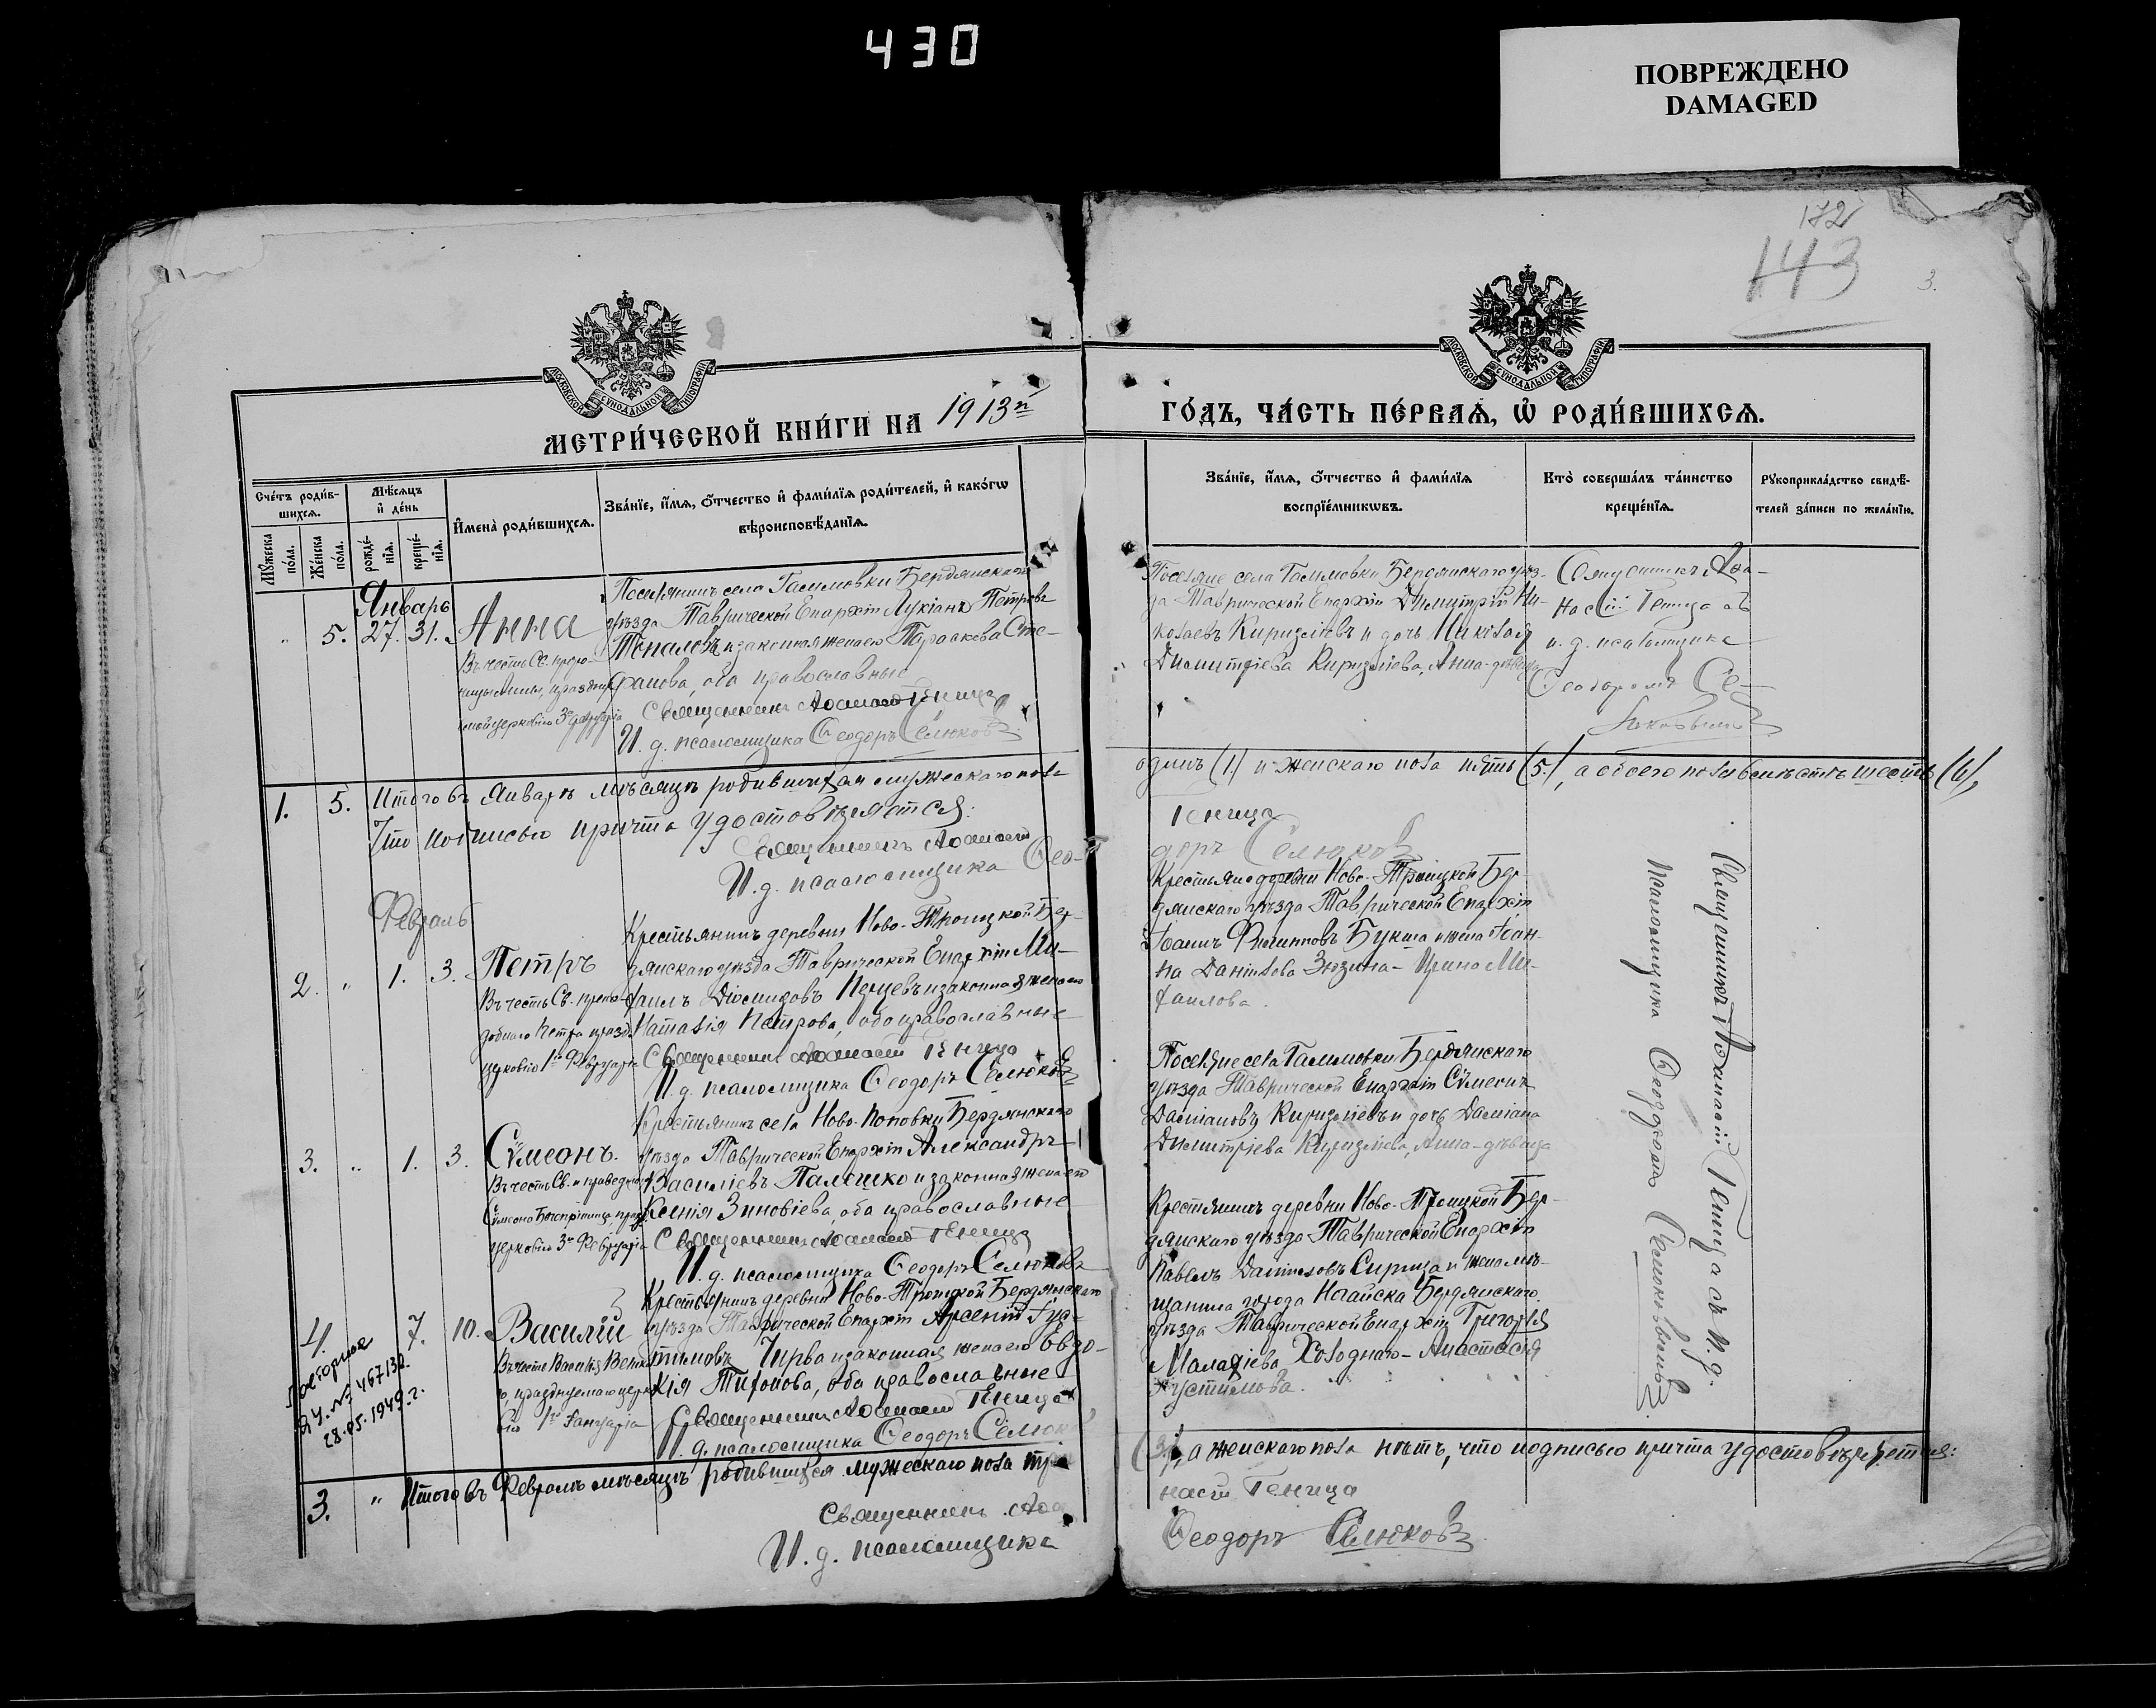 430
ПОВРЕЖДЕНО
DAMAGED
172
143
3.
МОСКОВСКОЙ СѴНОДАЛЬНОЙ ТИПОГРАФІИ
МОСКОВСКОЙ СѴНОДАЛЬНОЙ ТИПОГРАФІИ
МЕТРИ́ЧЕСКОЙ КНИ́ГИ НА 1913й
ГО́ДЪ, ЧА́СТЬ ПЕ́РВАЯ, Ѡ҆ РОДИ́ВШИХСЯ.
Сче́тъ роди́в-
шихся.
Мѣ́сяцъ
и҆ де́нь
Му́жеска по́ла.
Же́нска по́ла.
рожде́-нїя.
креще́-нїя.
И҆мена̀ роди́вшихся.
Зва́нїе, и҆́мя, ѻ҆́тчество и҆ фами́лїя роди́телей, и҆ како́гѡ
вѣроисповѣ́данїя.
Зва́нїе, и҆́мя, ѻ҆́тчество и҆ фами́лїя
воспрїе́мникѡвъ.
Кто̀ соверша́лъ та́инство
креще́нїя.
Рꙋкоприкла́дство свидѣ́-
телей за́писи по жела́нїю.
Январь
" 5. 27. 31. Анна
Въ честь Св. проро-
чицы Анны, праздну
емой церковію 3го февруарія
Поселянинъ села Гамовки Бердянскаго
уѣзда Таврической Епархіи Лукіанъ Петровъ
Топаловъ и законная жена его Параскева Сте-
фанова, оба православные
Священникъ Аѳанасій Геница
И. д. псаломщика Ѳеодоръ Селюковъ
Поселяне села Гамовки Бердянскаго уѣз-
да Таврической Епархіи Димитрій Ни-
колаевъ Киризліевъ и дочь Николая
Димитріева Киризліева, Анна-дѣвица
Священникъ Аѳа-
насій Геница съ
и. д. псаломщика
Ѳеодоромъ Се-
люковымъ
1. 5. Итого въ Январѣ мѣсяцѣ родившихся мужескаго пола
одинъ (1) и женскаго пола пять (5), а обоего пола вмѣстѣ шесть (6),
Что подписью причта удостовѣряется:
Священникъ Аѳанасій
Геница
И. д. псаломщика Ѳео-
доръ Селюковъ
Февраль
2. " 1. 3. Петръ
Въ честь Св. препо-
добнаго Петра празд.
церковію 1го Февруарія
Крестьянинъ деревни Ново-Троицкой Бер-
дянскаго уѣзда Таврической Епархіи Ми-
хаилъ Діомидовъ Перцевъ и законная жена его
Наталія Петрова, оба православные
Священникъ Аѳанасій Геница
И. д. псаломщика Ѳеодоръ Селюковъ
Крестьяне деревни Ново-Троицкой Бер-
дянскаго уѣзда Таврической Епархіи
Іоаннъ Филипповъ Букша и жена Іоан-
на Даніилова Зюзина - Ирина Ми-
хаилова.
3. " 1. 3. Сѵмеонъ.
Въ честь Св. и праведнаго
Сѵмеона Богопріимца, праз.
церковію 3го Февруарія
Крестьянинъ села Ново-Поповки Бердянскаго
уѣзда Таврической Епархіи Александръ
Василіевъ Палешко и законная жена его
Ксенія Зиновіева, оба православные
Священникъ Аѳанасій Геница
И. д. псаломщика Ѳеодоръ Селюковъ
Поселяне села Гамовки Бердянскаго
уѣзда Таврической Епархіи Сѵмеонъ
Даміановъ Киризліевъ и дочь Даміана
Димитріева Киризліева, Анна-дѣвица
4. 7. 10. Василій
Въ честь Василія Велика
го, празднуемаго церко
вію 1го Іануарія
Повторное
ЯЧ. № 467132
28.05.1949 г.
Крестьянинъ деревни Ново-Троицкой Бердянскаго
уѣзда Таврической Епархіи Арсеній Іус-
тимовъ Чирва и законная жена его Евдо-
кія Тихонова, оба православные
Священникъ Аѳанасій Геница
И. д. псаломщика Ѳеодоръ Селюковъ
Крестьянинъ деревни Ново-Троицкой Бер-
дянскаго уѣзда Таврической Епархіи
Павелъ Данииловъ Сирица и жена мѣ-
щанина города Ногайска Бердянскаго
уѣзда Таврической Епархіи Григорія
Малахіева Холоднаго - Анастасія
Іустимова.
Священникъ Аѳанасій Геница съ И. д.
псаломщика Ѳеодоромъ Селюковымъ
3. " Итого въ Февралѣ мѣсяцѣ родившихся мужескаго пола три
(3), а женскаго пола нѣтъ, что подписью причта удостовѣряется:
Священникъ Аѳа
насій Геница
И. д. псаломщика
Ѳеодоръ Селюковъ